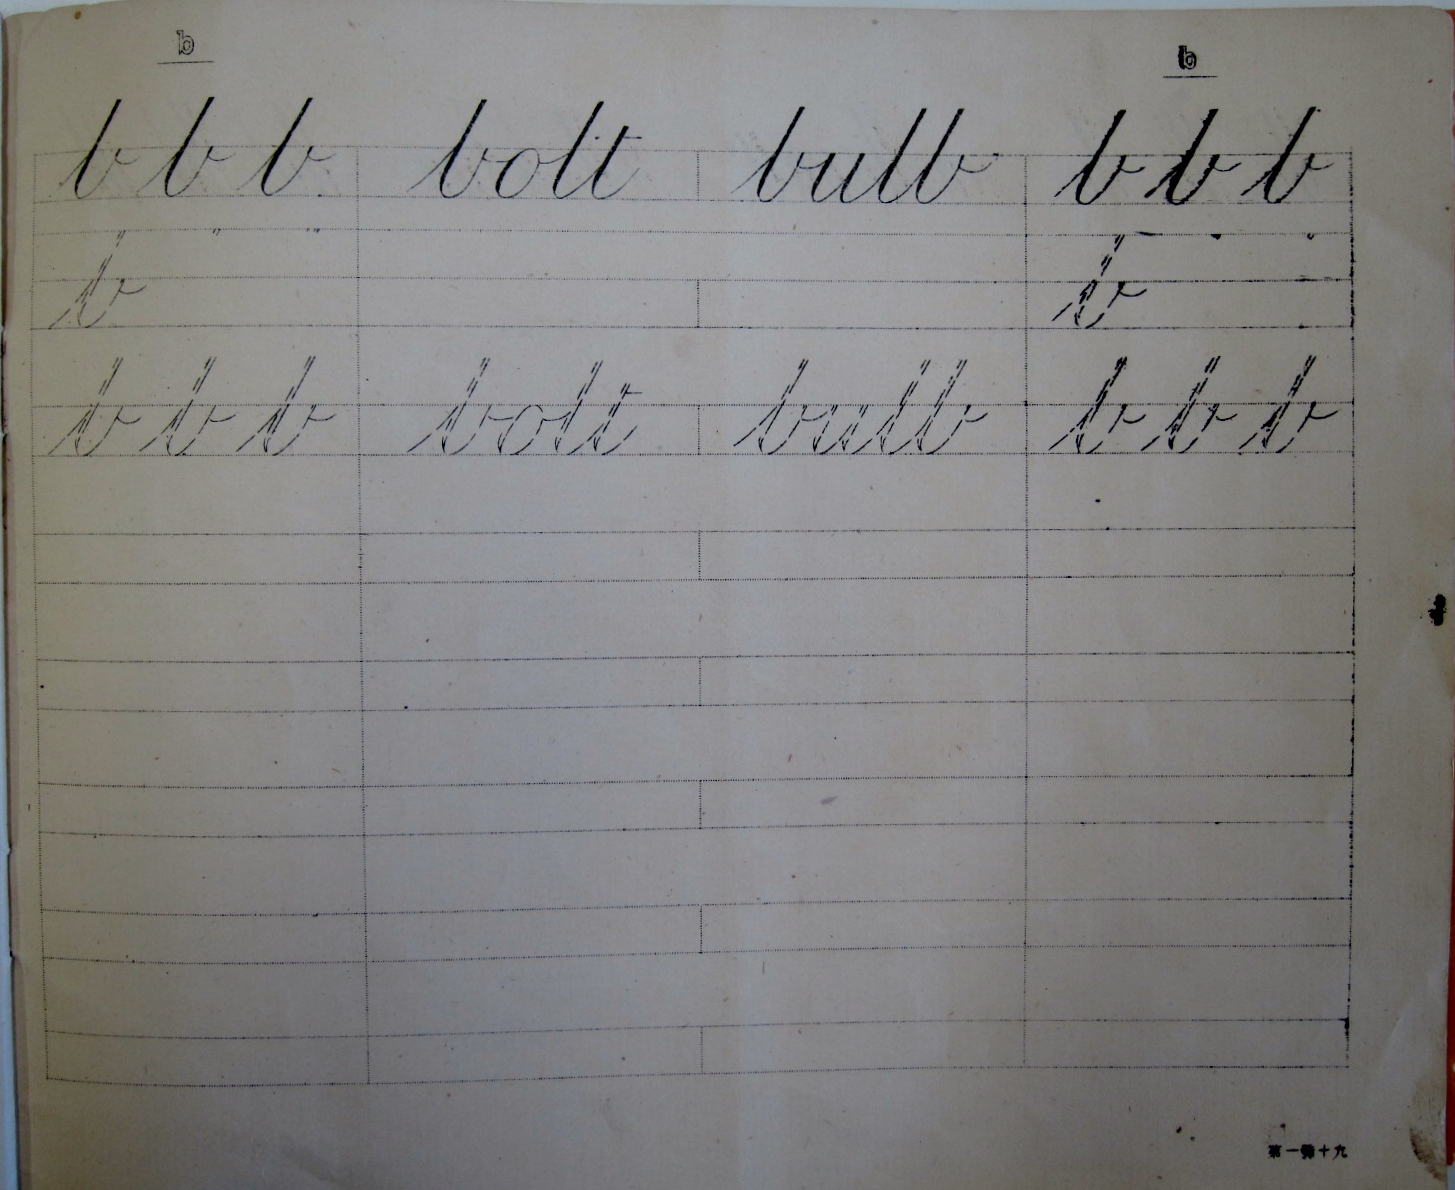 b b
b b b bolt bulb b b b
b b
b b b bolt bulb b b b
第一號十九